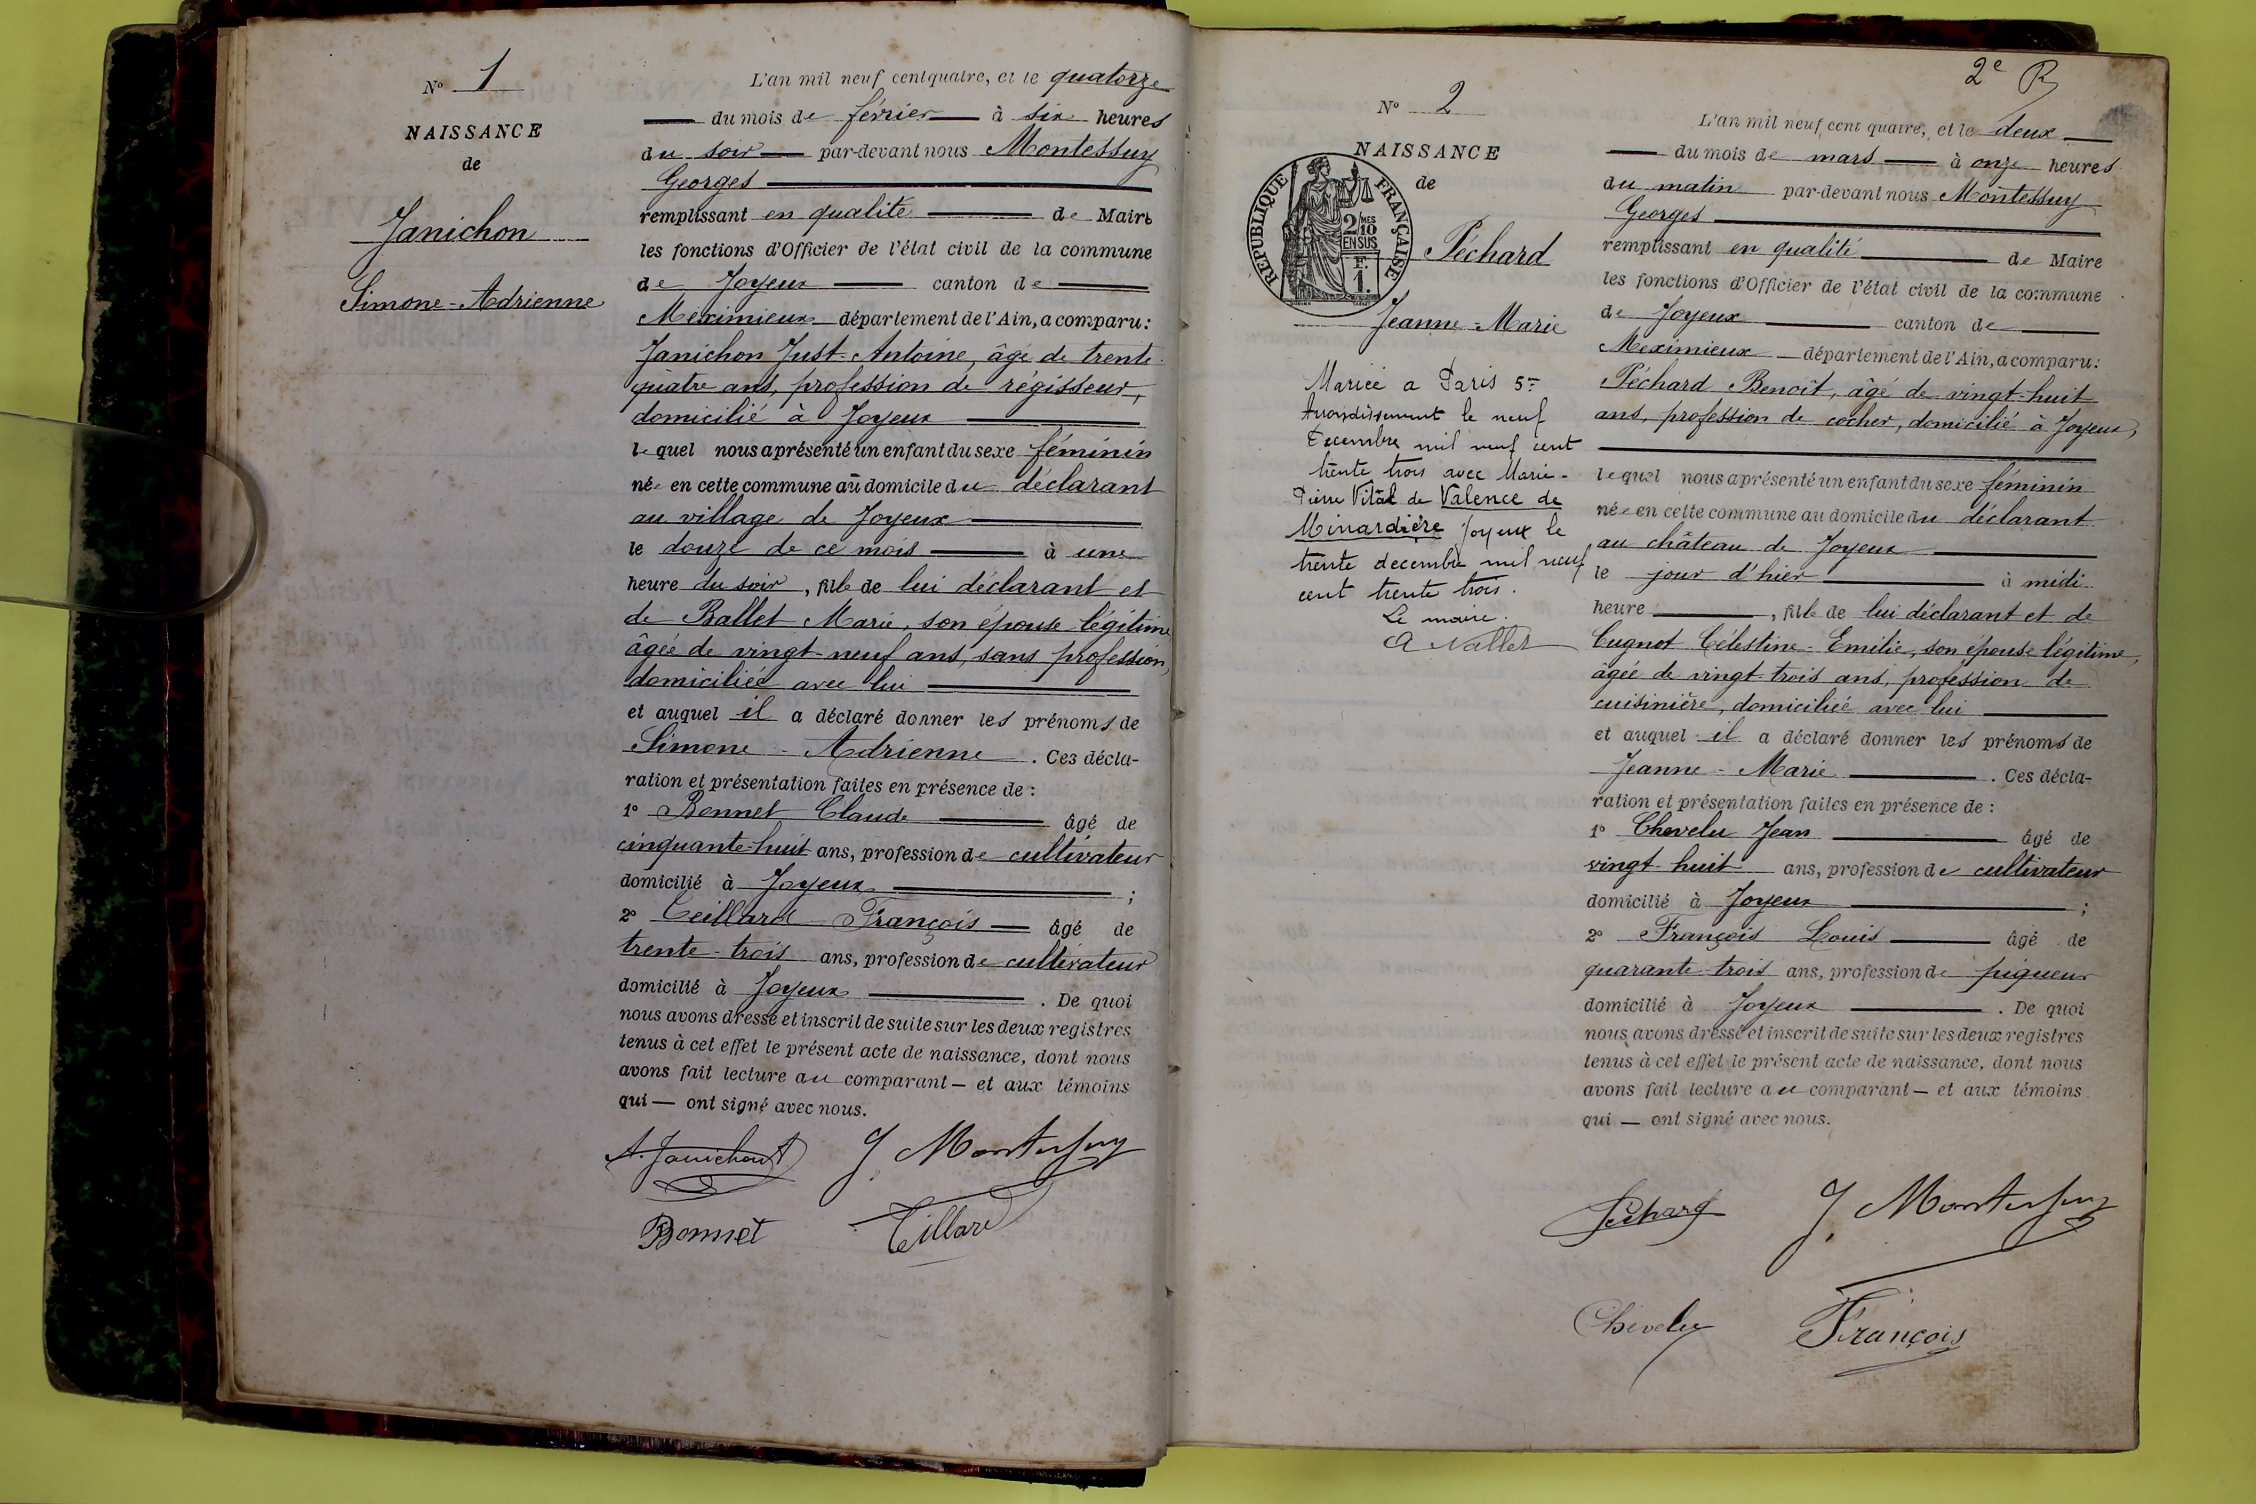 N° 1
NAISSANCE
de
Janichon
Simone-Adrienne
L'an mil neuf cent quatre, et le quatorze
du mois de février à six heures
du soir par-devant nous Montessuy
Georges
remplissant en qualité de Maire
les fonctions d'Officier de l'état civil de la commune
de Joyeux canton de
Meximieux département de l'Ain, a comparu:
Janichon Just-Antoine, âgé de trente
quatre ans, profession de régisseur,
domicilié à Joyeux
lequel nous a présenté un enfant du sexe féminin
née en cette commune au domicile du déclarant
au village de Joyeux
le douze de ce mois à une
heure du soir, fille de lui déclarant et
de Ballet Marie, son épouse légitime
âgée de vingt-neuf ans, sans profession,
domiciliée avec lui
et auquel il a déclaré donner les prénoms de
Simone-Adrienne. Ces décla-
ration et présentation faites en présence de :
1° Bonnet Claude âgé de
cinquante-huit ans, profession de cultivateur
domicilié à Joyeux ;
2° Teillard François âgé de
trente-trois ans, profession de cultivateur
domicilié à Joyeux. De quoi
nous avons dressé et inscrit de suite sur les deux registres
tenus à cet effet le présent acte de naissance, dont nous
avons fait lecture au comparant — et aux témoins
qui — ont signé avec nous.
A. Janichon G. Montessuy
Bonnet Teillard
2e R
N° 2
NAISSANCE
de
REPUBLIQUE FRANÇAISE
2/10 MES
EN SUS
F.
1.
Péchard
Jeanne-Marie
Mariée a Paris 5e
Arrondissement le neuf
Decembre mil neuf cent
trente trois avec Marie-
Pierre Vital de Valence de
Minardière Joyeux le
trente decembre mil neuf
cent trente trois.
Le maire.
A Nallet
L'an mil neuf cent quatre, et le deux
du mois de mars à onze heures
du matin par-devant nous Montessuy
Georges
remplissant en qualité de Maire
les fonctions d'Officier de l'état civil de la commune
de Joyeux canton de
Meximieux département de l'Ain, a comparu:
Péchard Benoît, âgé de vingt-huit
ans, profession de cocher, domicilié à Joyeux,
lequel nous a présenté un enfant du sexe féminin
née en cette commune au domicile du déclarant
au château de Joyeux
le jour d'hier à midi
heure, fille de lui déclarant et de
Cugnot Célestine-Emilie, son épouse légitime,
âgée de vingt-trois ans, profession de
cuisinière, domiciliée avec lui
et auquel il a déclaré donner les prénoms de
Jeanne-Marie. Ces décla-
ration et présentation faites en présence de :
1° Chevelu Jean âgé de
vingt-huit ans, profession de cultivateur
domicilié à Joyeux ;
2° François Louis âgé de
quarante-trois ans, profession de piqueur
domicilié à Joyeux. De quoi
nous avons dressé et inscrit de suite sur les deux registres
tenus à cet effet le présent acte de naissance, dont nous
avons fait lecture au comparant — et aux témoins
qui — ont signé avec nous.
Péchard G. Montessuy
Chevelu François